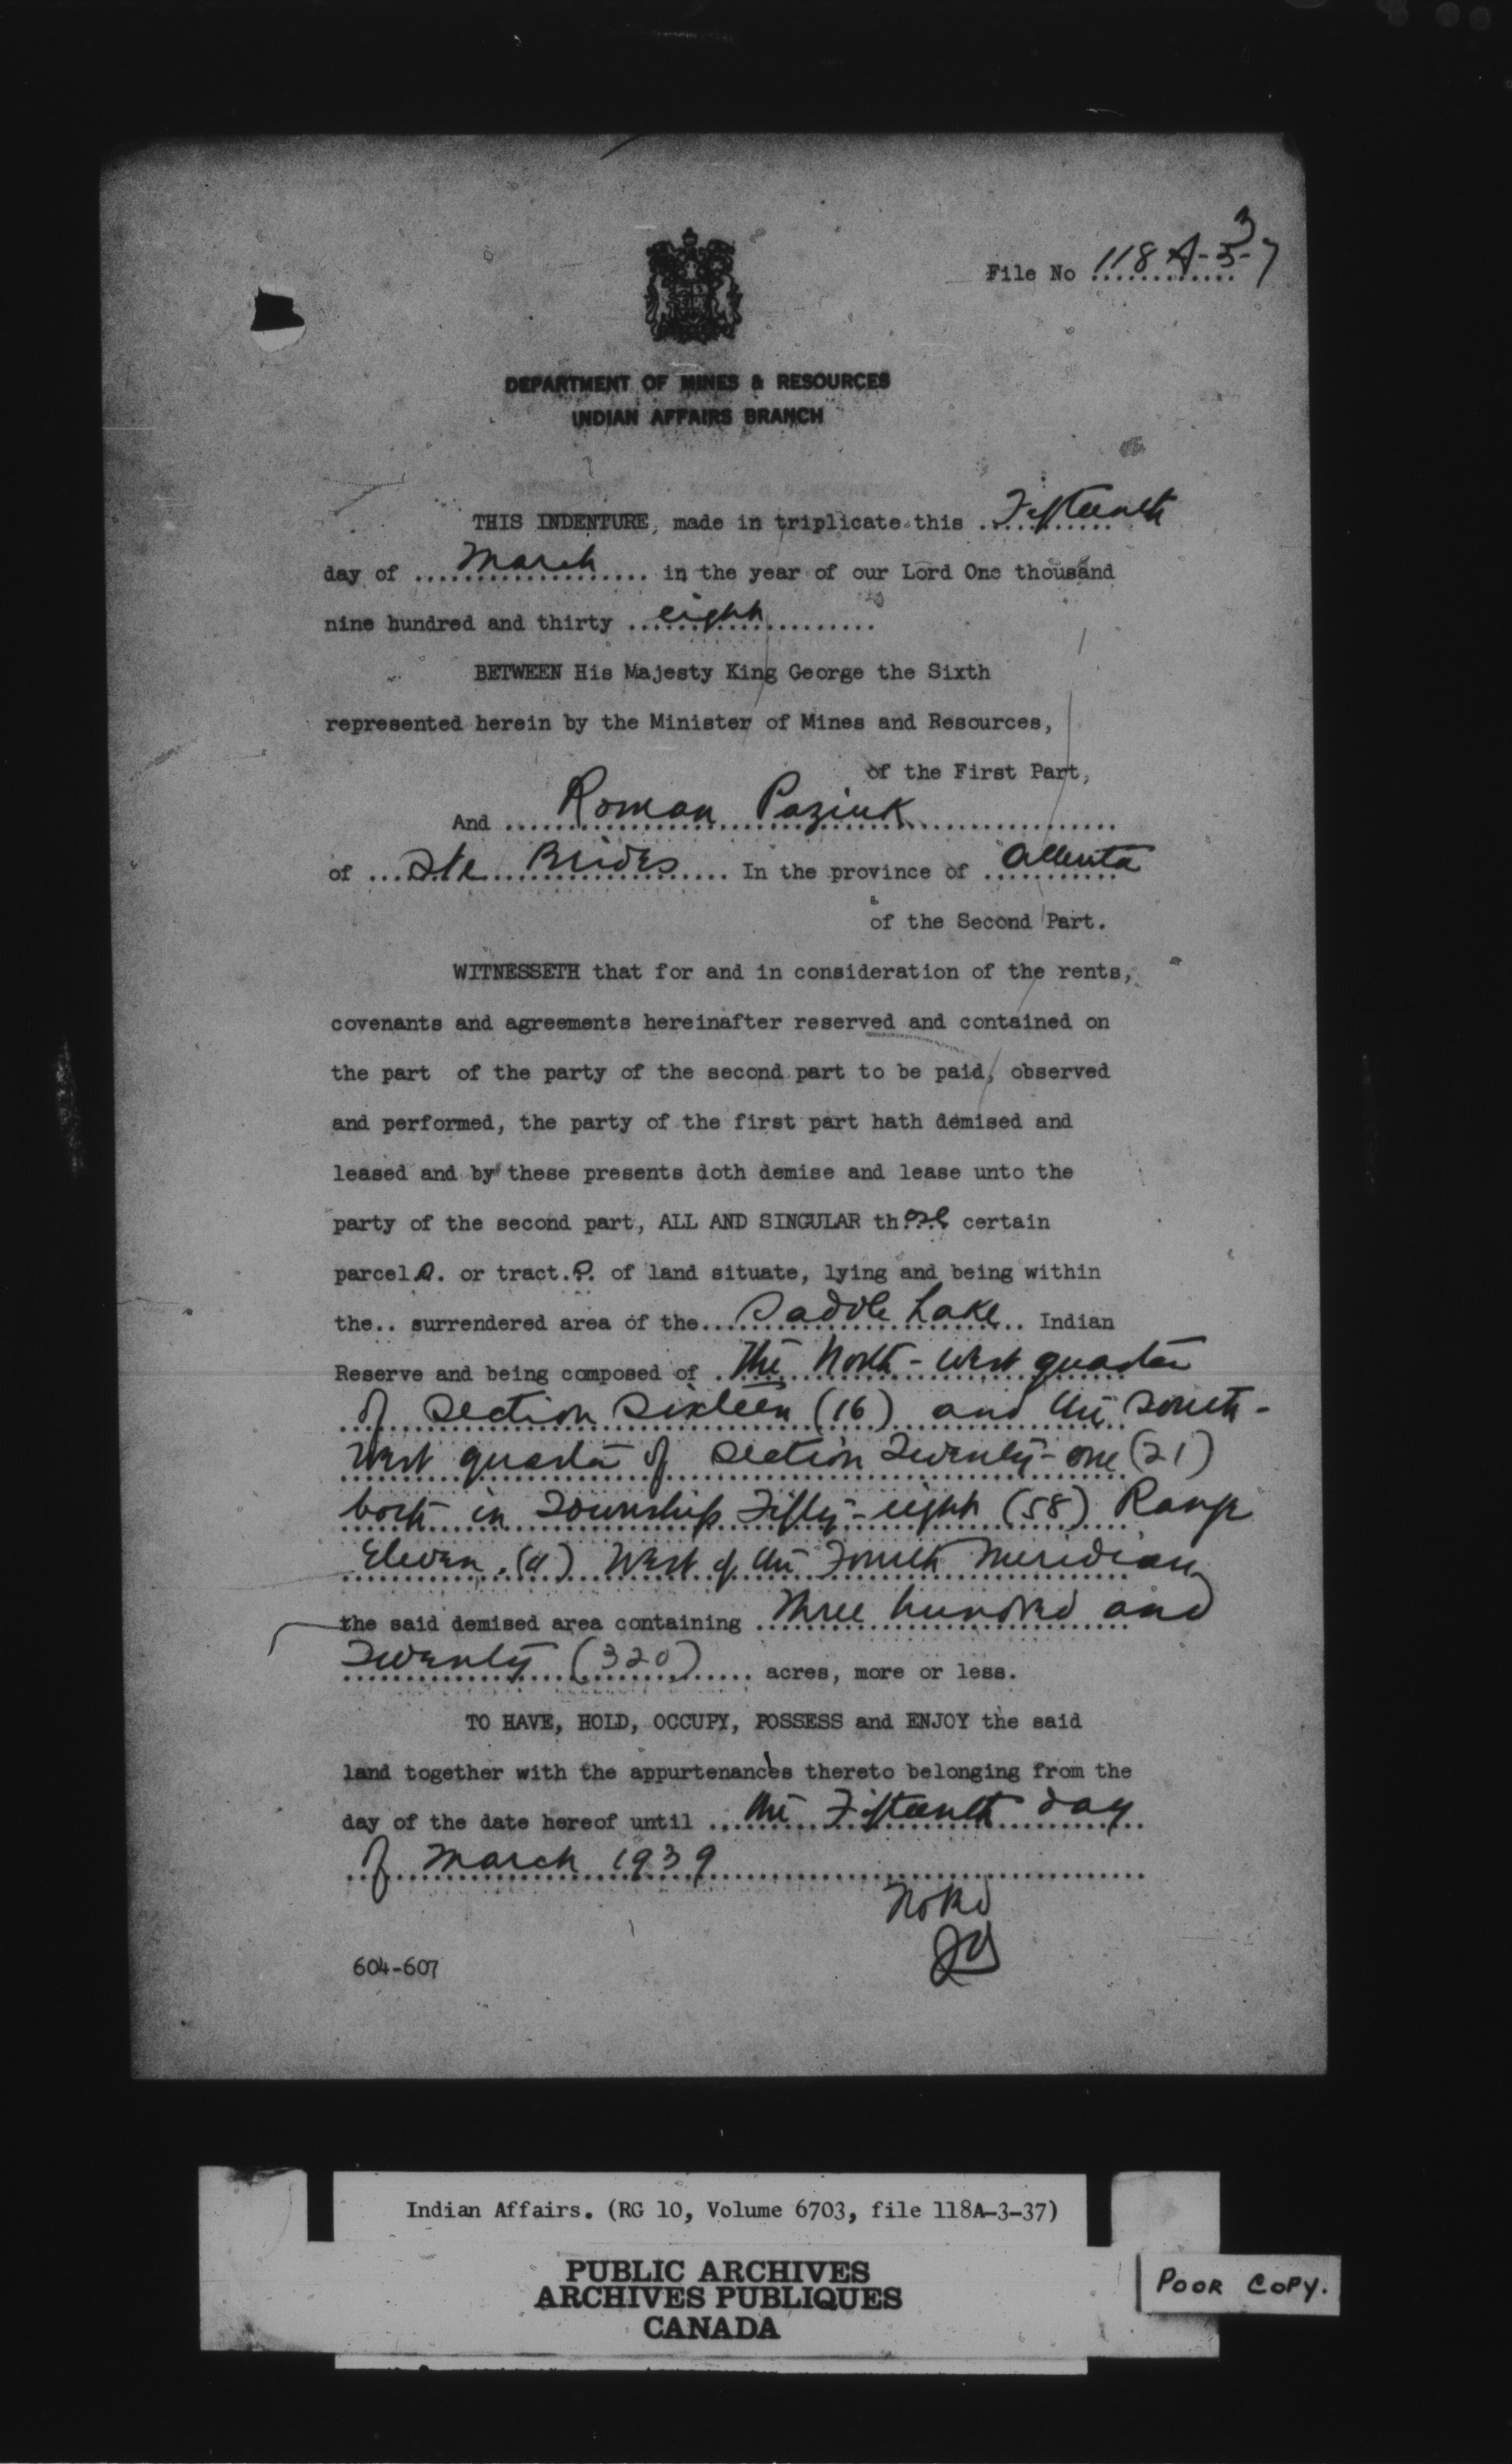 File No 118A-3-7
3
DEPARTMENT OF MINES & RESOURCES
INDIAN AFFAIRS BRANCH
THIS INDENTURE, made in triplicate this Fifteenth
day of March in the year of our Lord One thousand
nine hundred and thirty eight
BETWEEN His Majesty King George the Sixth
represented herein by the Minister of Mines and Resources,
of the First Part,
And Roman Paziuk
of Ste Brides In the province of Alberta
of the Second Part.
WITNESSETH that for and in consideration of the rents,
covenants and agreements hereinafter reserved and contained on
the part of the party of the second part to be paid, observed
and performed, the party of the first part hath demised and
leased and by these presents doth demise and lease unto the
party of the second part, ALL AND SINGULAR those certain
parcels. or tract.s. of land situate, lying and being within
the.. surrendered area of the... Saddle Lake.. Indian
Reserve and being composed of The North-West quarter
of Section Sixteen (16) and the South-
West quarter of Section Twenty-one (21)
both in Township Fifty-eight (58) Range
Eleven (11) West of the Fourth Meridian
the said demised area containing Three hundred and
Twenty (320) acres, more or less.
TO HAVE, HOLD, OCCUPY, POSSESS and ENJOY the said
land together with the appurtenances thereto belonging from the
day of the date hereof until the Fifteenth day
of March 1939
Noted
604-607
Indian Affairs. (RG 10, Volume 6703, file 118A-3-37)
PUBLIC ARCHIVES
ARCHIVES PUBLIQUES
CANADA
POOR COPY.